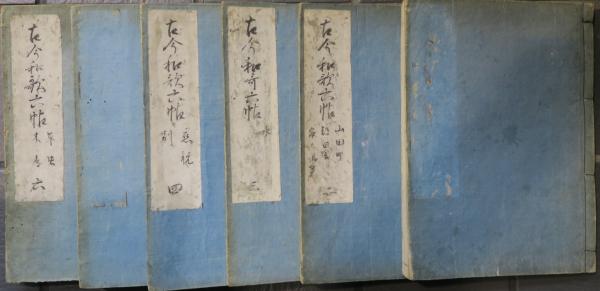 古今和歌六帖
山田野
二
古今和哥六帖
水
三
古今和歌六帖
恋祝
別
四
古今和歌六帖
草虫
木鳥
六